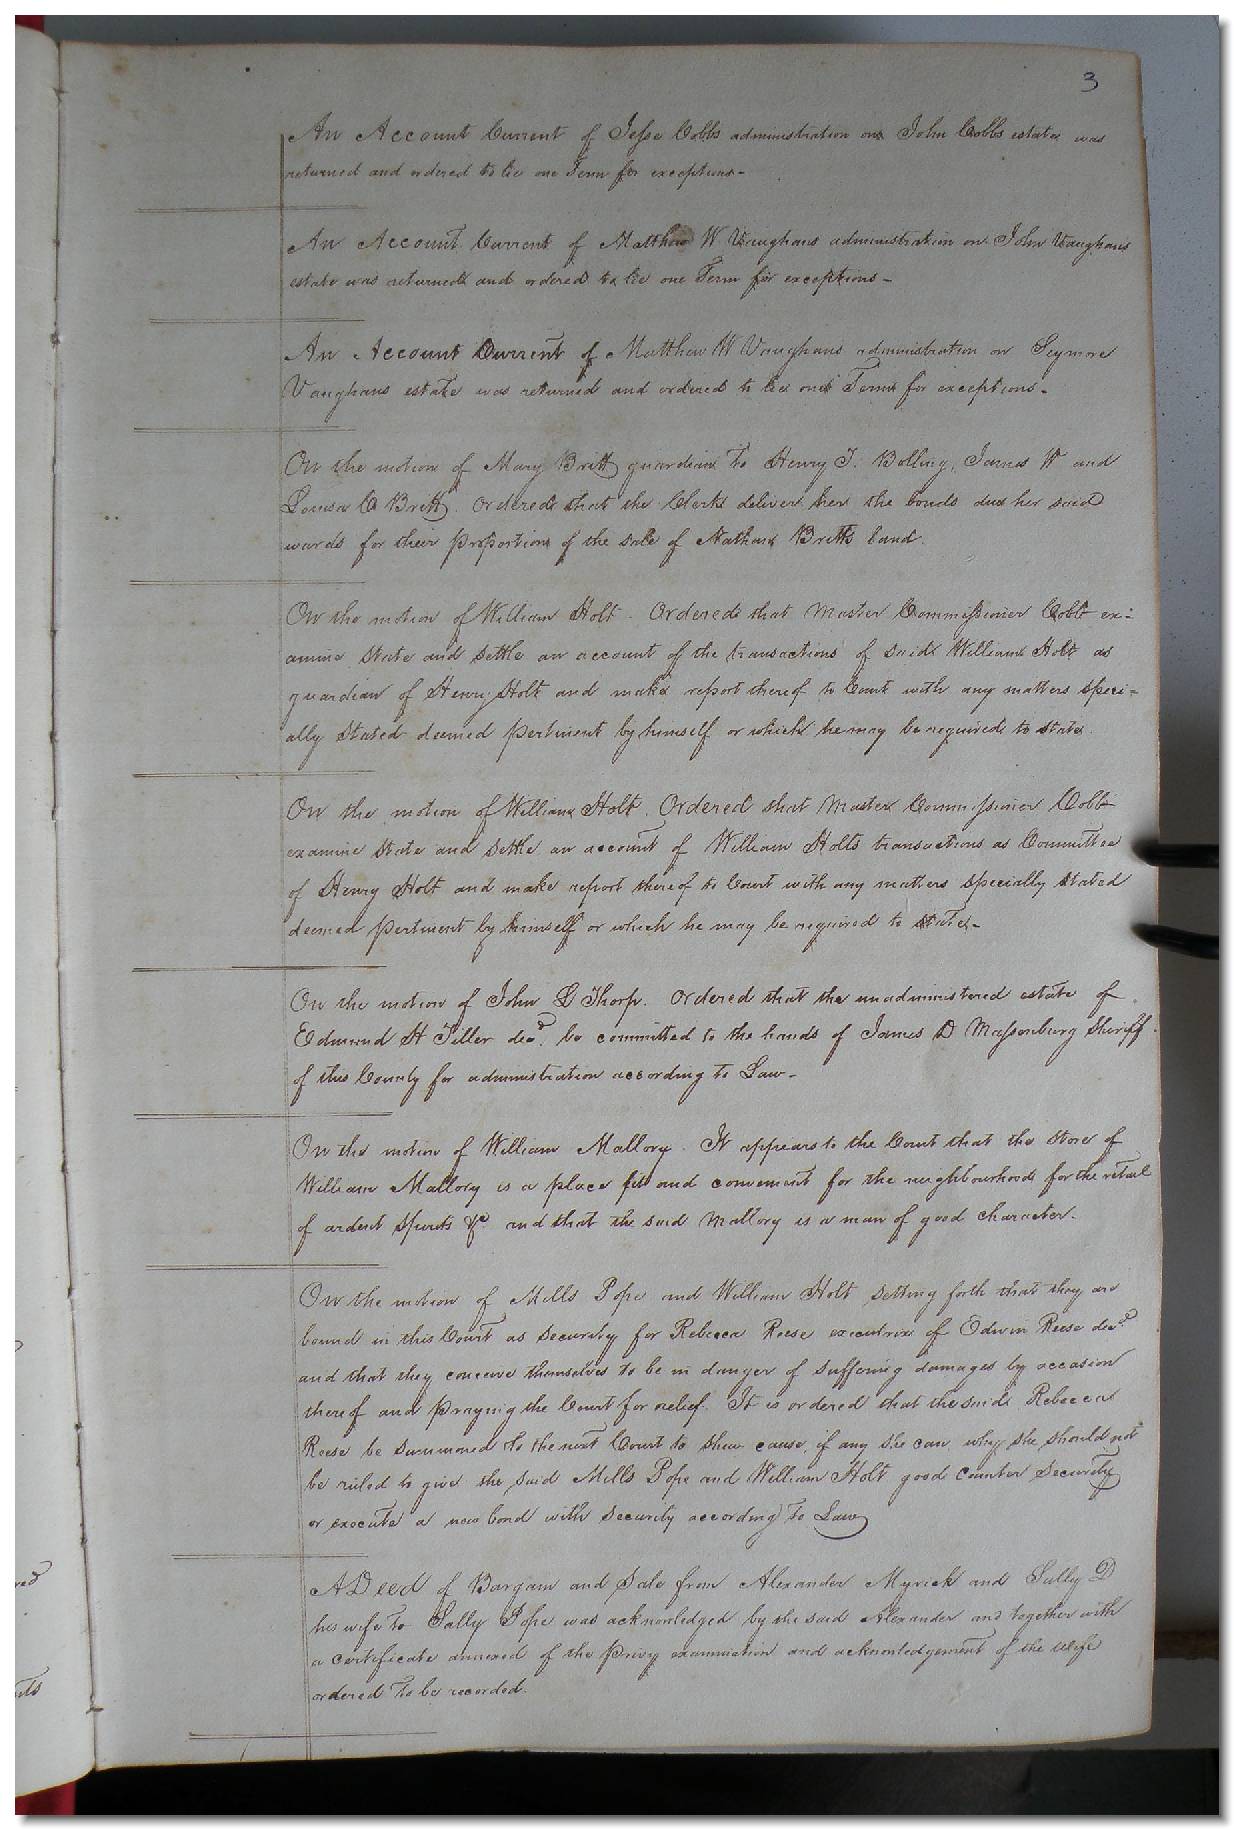 3
An Account Current of Jesse Cobbs administration on John Cobbs estate was
returned and ordered to lie one Term for exceptions-
An Account Current of Matthew W Vaughans administration on John Vaughans
estate was returned and ordered to lie one Term for exceptions-
An Account Current of Matthew W Vaughans administration on Seymore
Vaughans estate was returned and ordered to lie one Term for exceptions-
On the motion of Mary Britt guardian to Henry T. Bolling, James W and
Louisa A Britt. Ordered that the Clerk deliver her the bonds due her said
wards for their proportion of the sale of Nathan Britts land.
On the motion of William Holt. Ordered that Master Commissioner Cobb ex-
amine state and settle an account of the transactions of said William Holt as
guardian of Henry Holt and make report thereof to Court with any matters speci-
ally stated deemed pertinent by himself or which he may be required to state.
On the motion of William Holt. Ordered that Master Commissioner Cobb
examine state and settle an account of William Holts transactions as Committee
of Henry Holt and make report thereof to Court with any matters specially stated
deemed pertinent by himself or which he may be required to state-
On the motion of John L Thorp. Ordered that the unadministered estate of
Edmund H Tiller decd. be committed to the hands of James D Massenburg Sheriff
of this County for administration according to Law-
On the motion of William Mallory. It appears to the Court that the store of
William Mallory is a place fit and convenient for the neighbourhood for the retail
of ardent spirits &c. and that the said Mallory is a man of good character.
On the motion of Mills Pope and William Holt setting forth that they are
bound in this Court as security for Rebecca Reese executrix of Edwin Reese decd.
and that they conceive themselves to be in danger of suffering damages by occasion
thereof and praying the Court for relief. It is ordered that the said Rebecca
Reese be summoned to the next Court to shew cause, if any she can, why she should not
be ruled to give the said Mills Pope and William Holt good counter security
or execute a new bond with security according to Law
A Deed of Bargain and Sale from Alexander Myrick and Sally D
his wife to Sally Pope was acknowledged by the said Alexander and together with
a certificate annexed of the privy examination and acknowledgement of the wife
ordered to be recorded.